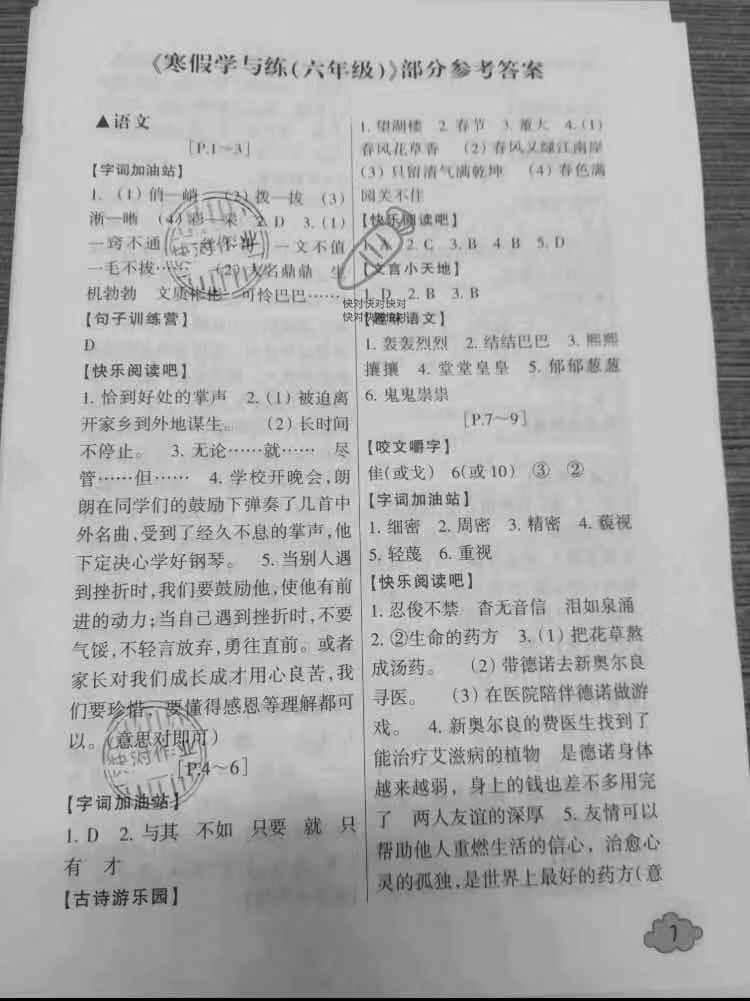 《寒假学与练(六年级)》部分参考答案
▲语文
[P.1～3]
【字词加油站】
1. (1) 俏—峭 (2) 拨—拔 (3)
淅—晰 (4) 彩—采 2. D 3. (1)
一窍不通 一丝不苟 一文不值
一毛不拔…… (2) 大名鼎鼎 生
机勃勃 文质彬彬 可怜巴巴……
【句子训练营】
D
【快乐阅读吧】
1. 恰到好处的掌声 2. (1) 被迫离
开家乡到外地谋生。 (2) 长时间
不停止。 3. 无论……就…… 尽
管……但…… 4. 学校开晚会,朗
朗在同学们的鼓励下弹奏了几首中
外名曲,受到了经久不息的掌声,他
下定决心学好钢琴。 5. 当别人遇
到挫折时,我们要鼓励他,使他有前
进的动力;当自己遇到挫折时,不要
气馁,不轻言放弃,勇往直前。或者
家长对我们成长成才用心良苦,我
们要珍惜,要懂得感恩等理解都可
以。(意思对即可)
[P.4～6]
【字词加油站】
1. D 2. 与其 不如 只要 就 只
有 才
【古诗游乐园】
1. 望湖楼 2. 春节 3. 董大 4. (1)
春风花草香 (2) 春风又绿江南岸
(3) 只留清气满乾坤 (4) 春色满
园关不住
【快乐阅读吧】
1. A 2. C 3. B 4. B 5. D
【文言小天地】
1. D 2. B 3. D
【趣味语文】
1. 轰轰烈烈 2. 结结巴巴 3. 熙熙
攘攘 4. 堂堂皇皇 5. 郁郁葱葱
6. 鬼鬼祟祟
[P.7～9]
【咬文嚼字】
佳(或戈) 6(或10) ③ ②
【字词加油站】
1. 细密 2. 周密 3. 精密 4. 藐视
5. 轻蔑 6. 重视
【快乐阅读吧】
1. 忍俊不禁 杳无音信 泪如泉涌
2. ②生命的药方 3. (1) 把花草熬
成汤药。 (2) 带德诺去新奥尔良
寻医。 (3) 在医院陪伴德诺做游
戏。 4. 新奥尔良的费医生找到了
能治疗艾滋病的植物 是德诺身体
越来越弱，身上的钱也差不多用完
了 两人友谊的深厚 5. 友情可以
帮助他人重燃生活的信心，治愈心
灵的孤独,是世界上最好的药方(意
1
快对作业
快对快对快对
快对快对快对
快对作业